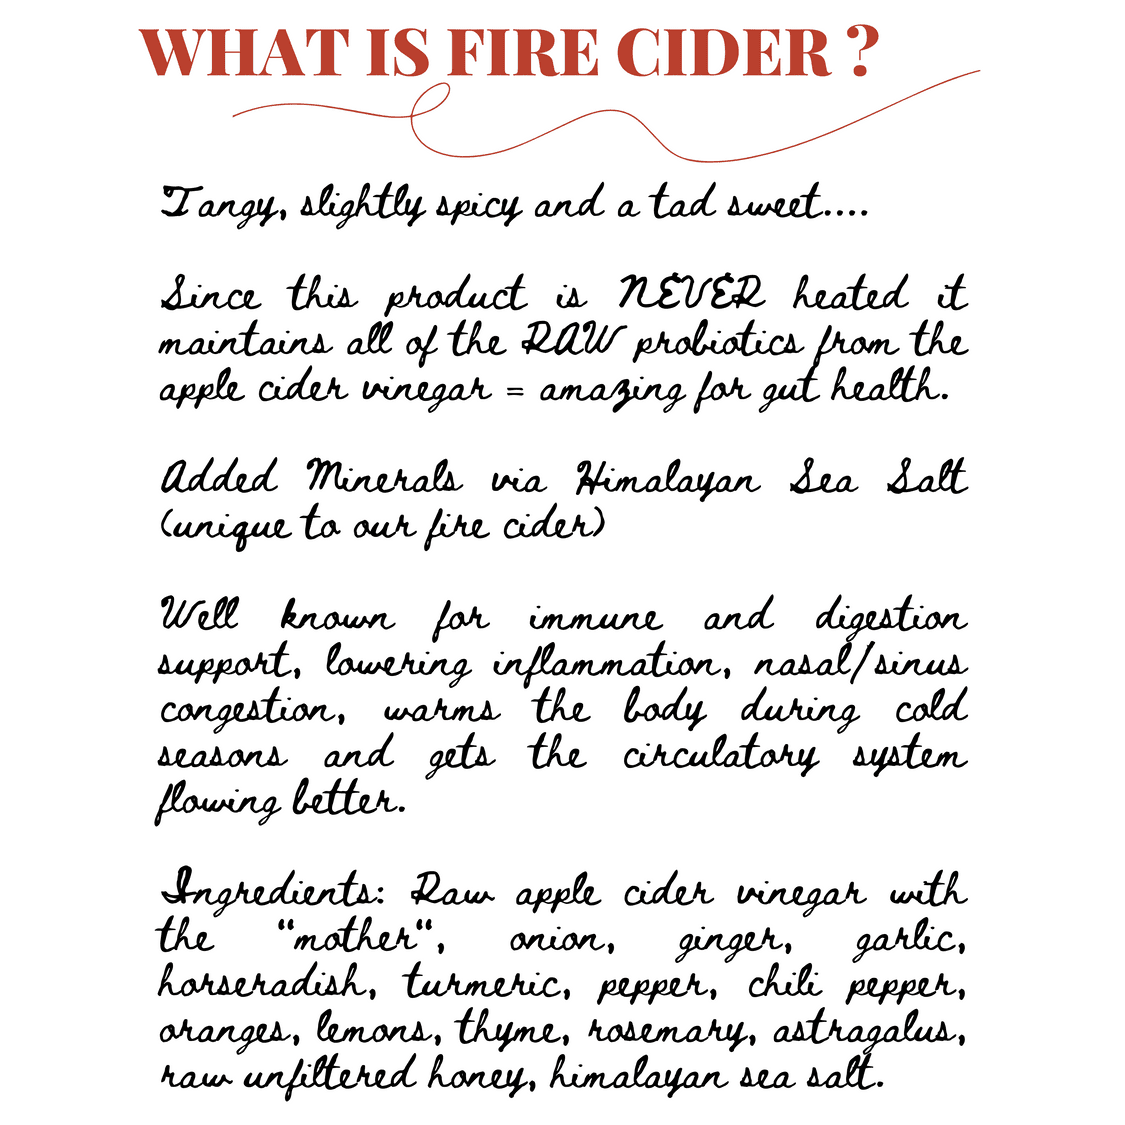 WHAT IS FIRE CIDER ?
Tangy, slightly spicy and a tad sweet....
Since this product is NEVER heated it
maintains all of the RAW probiotics from the
apple cider vinegar = amazing for gut health.
Added Minerals via Himalayan Sea Salt
(unique to our fire cider)
Well known for immune and digestion
support, lowering inflammation, nasal/sinus
congestion, warms the body during cold
seasons and gets the circulatory system
flowing better.
Ingredients: Raw apple cider vinegar with
the "mother", onion, ginger, garlic,
horseradish, turmeric, pepper, chili pepper,
oranges, lemons, thyme, rosemary, astragalus,
raw unfiltered honey, himalayan sea salt.